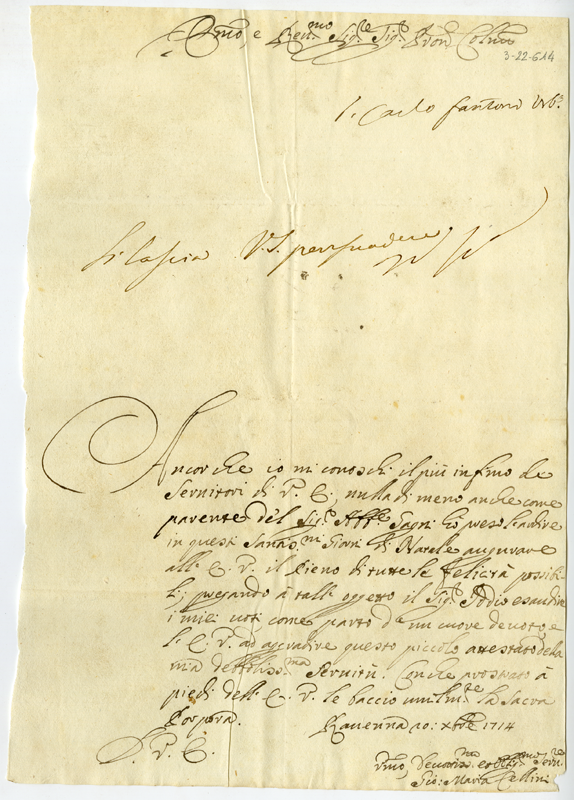 Em̃o, e Reu.mo Sig.re Sig.r Pron. Col.mo
3-22-614
Carlo fantoni Urb.o
Si lascia V.S. persuadere
Ancorche io mi conoschi il più infimo de
Seruitori di V. E., nulla di meno anche come
parente del Sig.r Abb.e Sagri hò preso l'ardire
in questi Santiss.mi Giorni di Natale augurare
all' E. V. il pieno di tutte le felicità possibi-
li; pregando à tall' oggetto il Sig.r Iddio esaudire
i miei uoti come parto d' un cuore deuoto, e
l' E. V. ad agradire questo piccolo attestato della
mia deboliss.ma Seruitù. Con che prostrato à
piedi dell' E. V. le baccio umilm.te la Sacra
Porpora. Rauenna 20: Xbre 1714
D. V. E.
Vmo, Deuotis.mo et Oblig.mo Seru.re
Gio: Maria Cellini